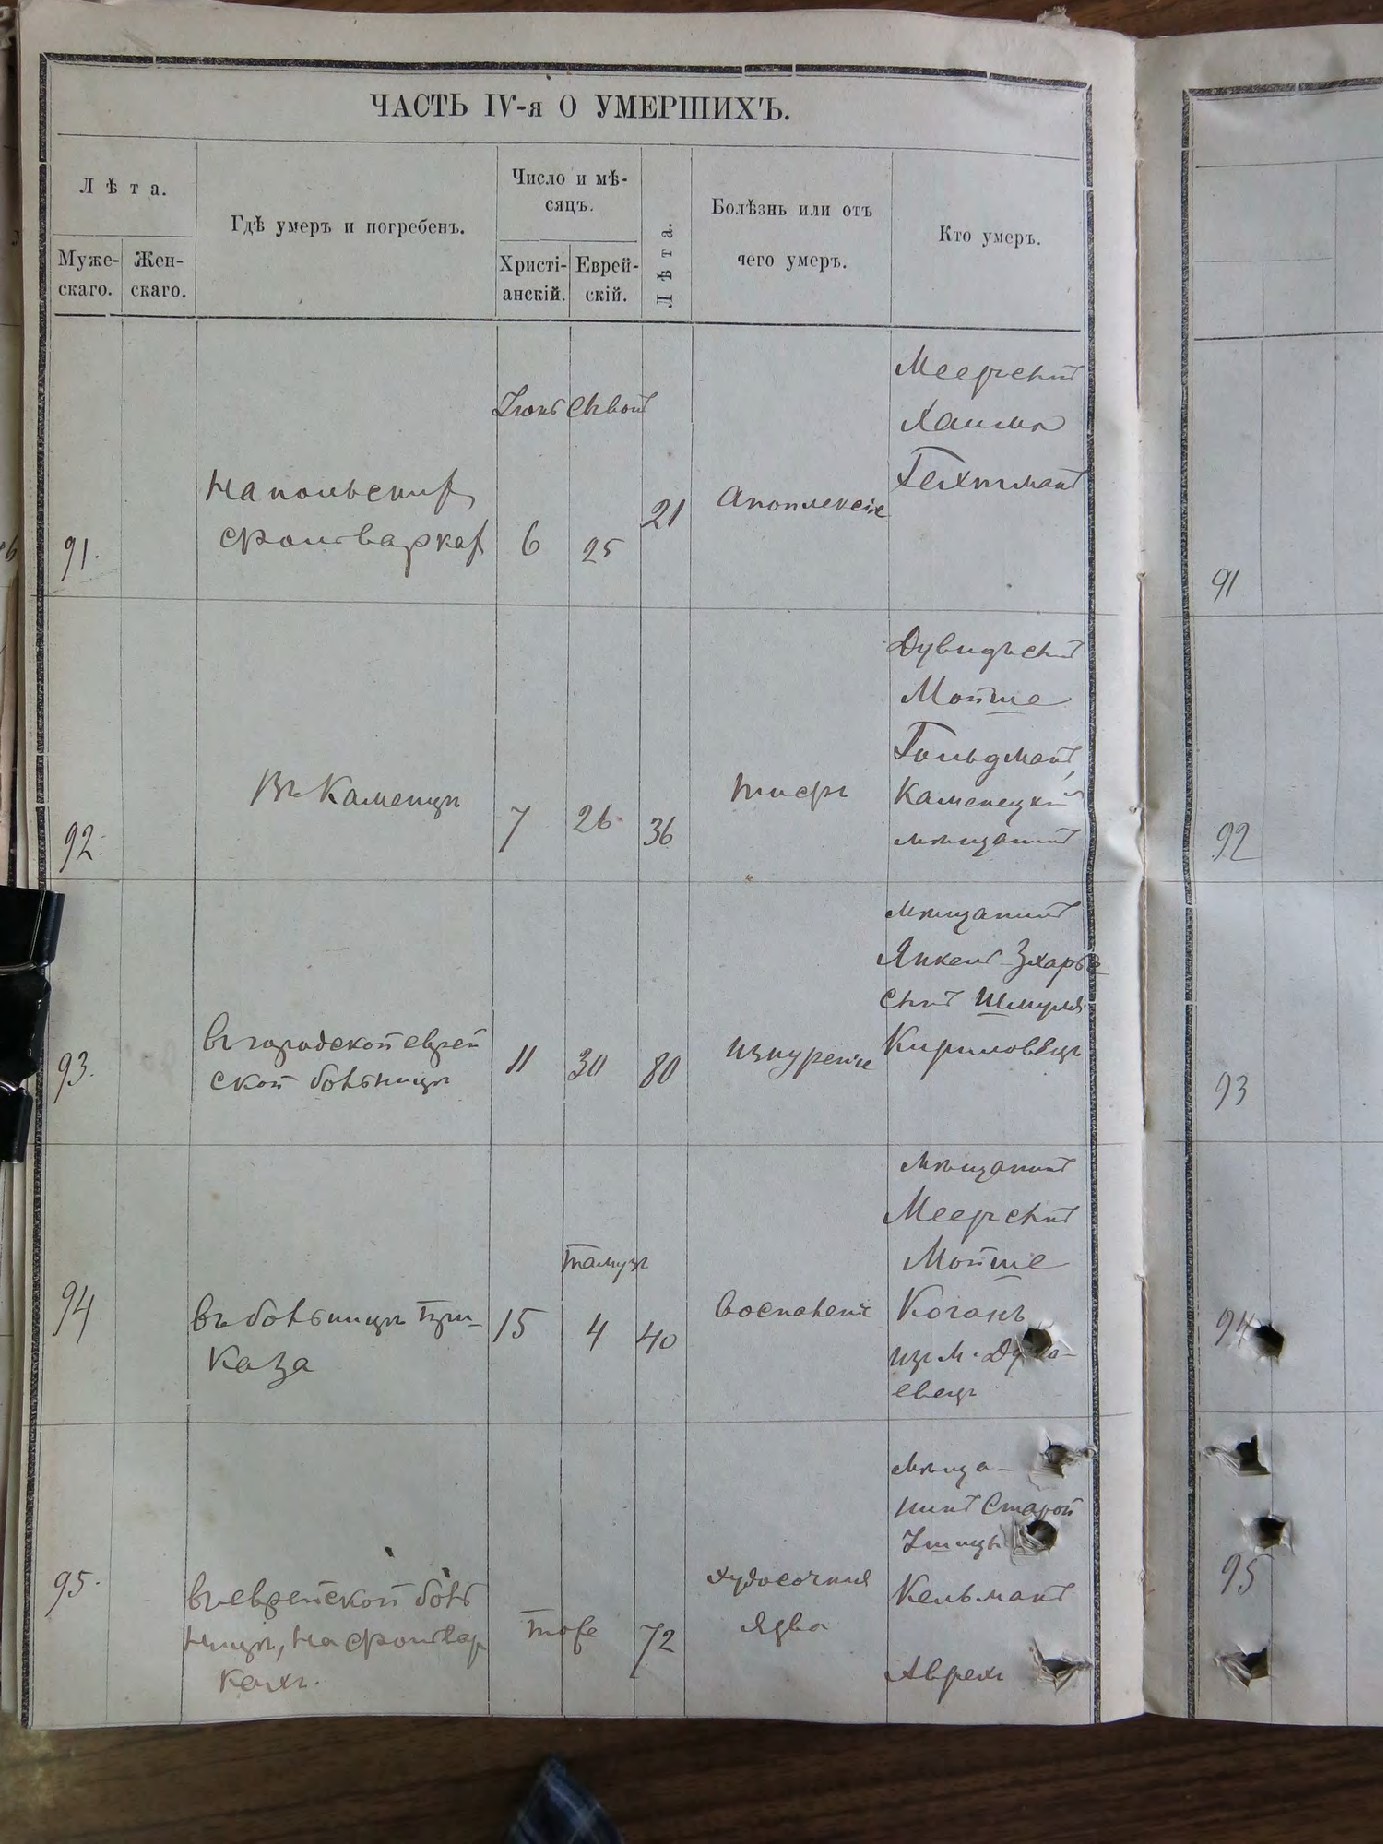 ЧАСТЬ IV-я О УМЕРШИХЪ.
Лѣта.
Муже-
скаго.
Жен-
скаго.
Гдѣ умеръ и погребенъ.
Число и мѣ-
сяцъ.
Христі-
анскій.
Еврей-
скій.
Лѣта.
Болѣзнь или отъ
чего умеръ.
Кто умеръ.
91.
На польских
фольварках
Июнь Сивон
6
25
21
Апоплексіе
Меерьский
Хаима
Гехтман
91
92.
Въ Каменцѣ
7
26
36
тифъ
Дувидъ
Мойше
Гольдман
Каменецкій
мѣщанинъ
92
93.
въ городской еврей
ской больницѣ
11
30
80
изнуреніе
мѣщанинъ
Янкель Зхарье
Шмуля
Кириловецъ
93
94
въ больницѣ при-
каза
15
Тамузъ
4
40
Воспаленіе
мѣщанинъ
Мойше
Коганъ
изъ м.
евецъ
94
95.
въ еврейской боль
ницѣ, на фольвар
кахъ.
тоже
72
худосочная
язва
мѣща-
нинъ Старой
Ушицы
Кельманъ
Аврехъ
95